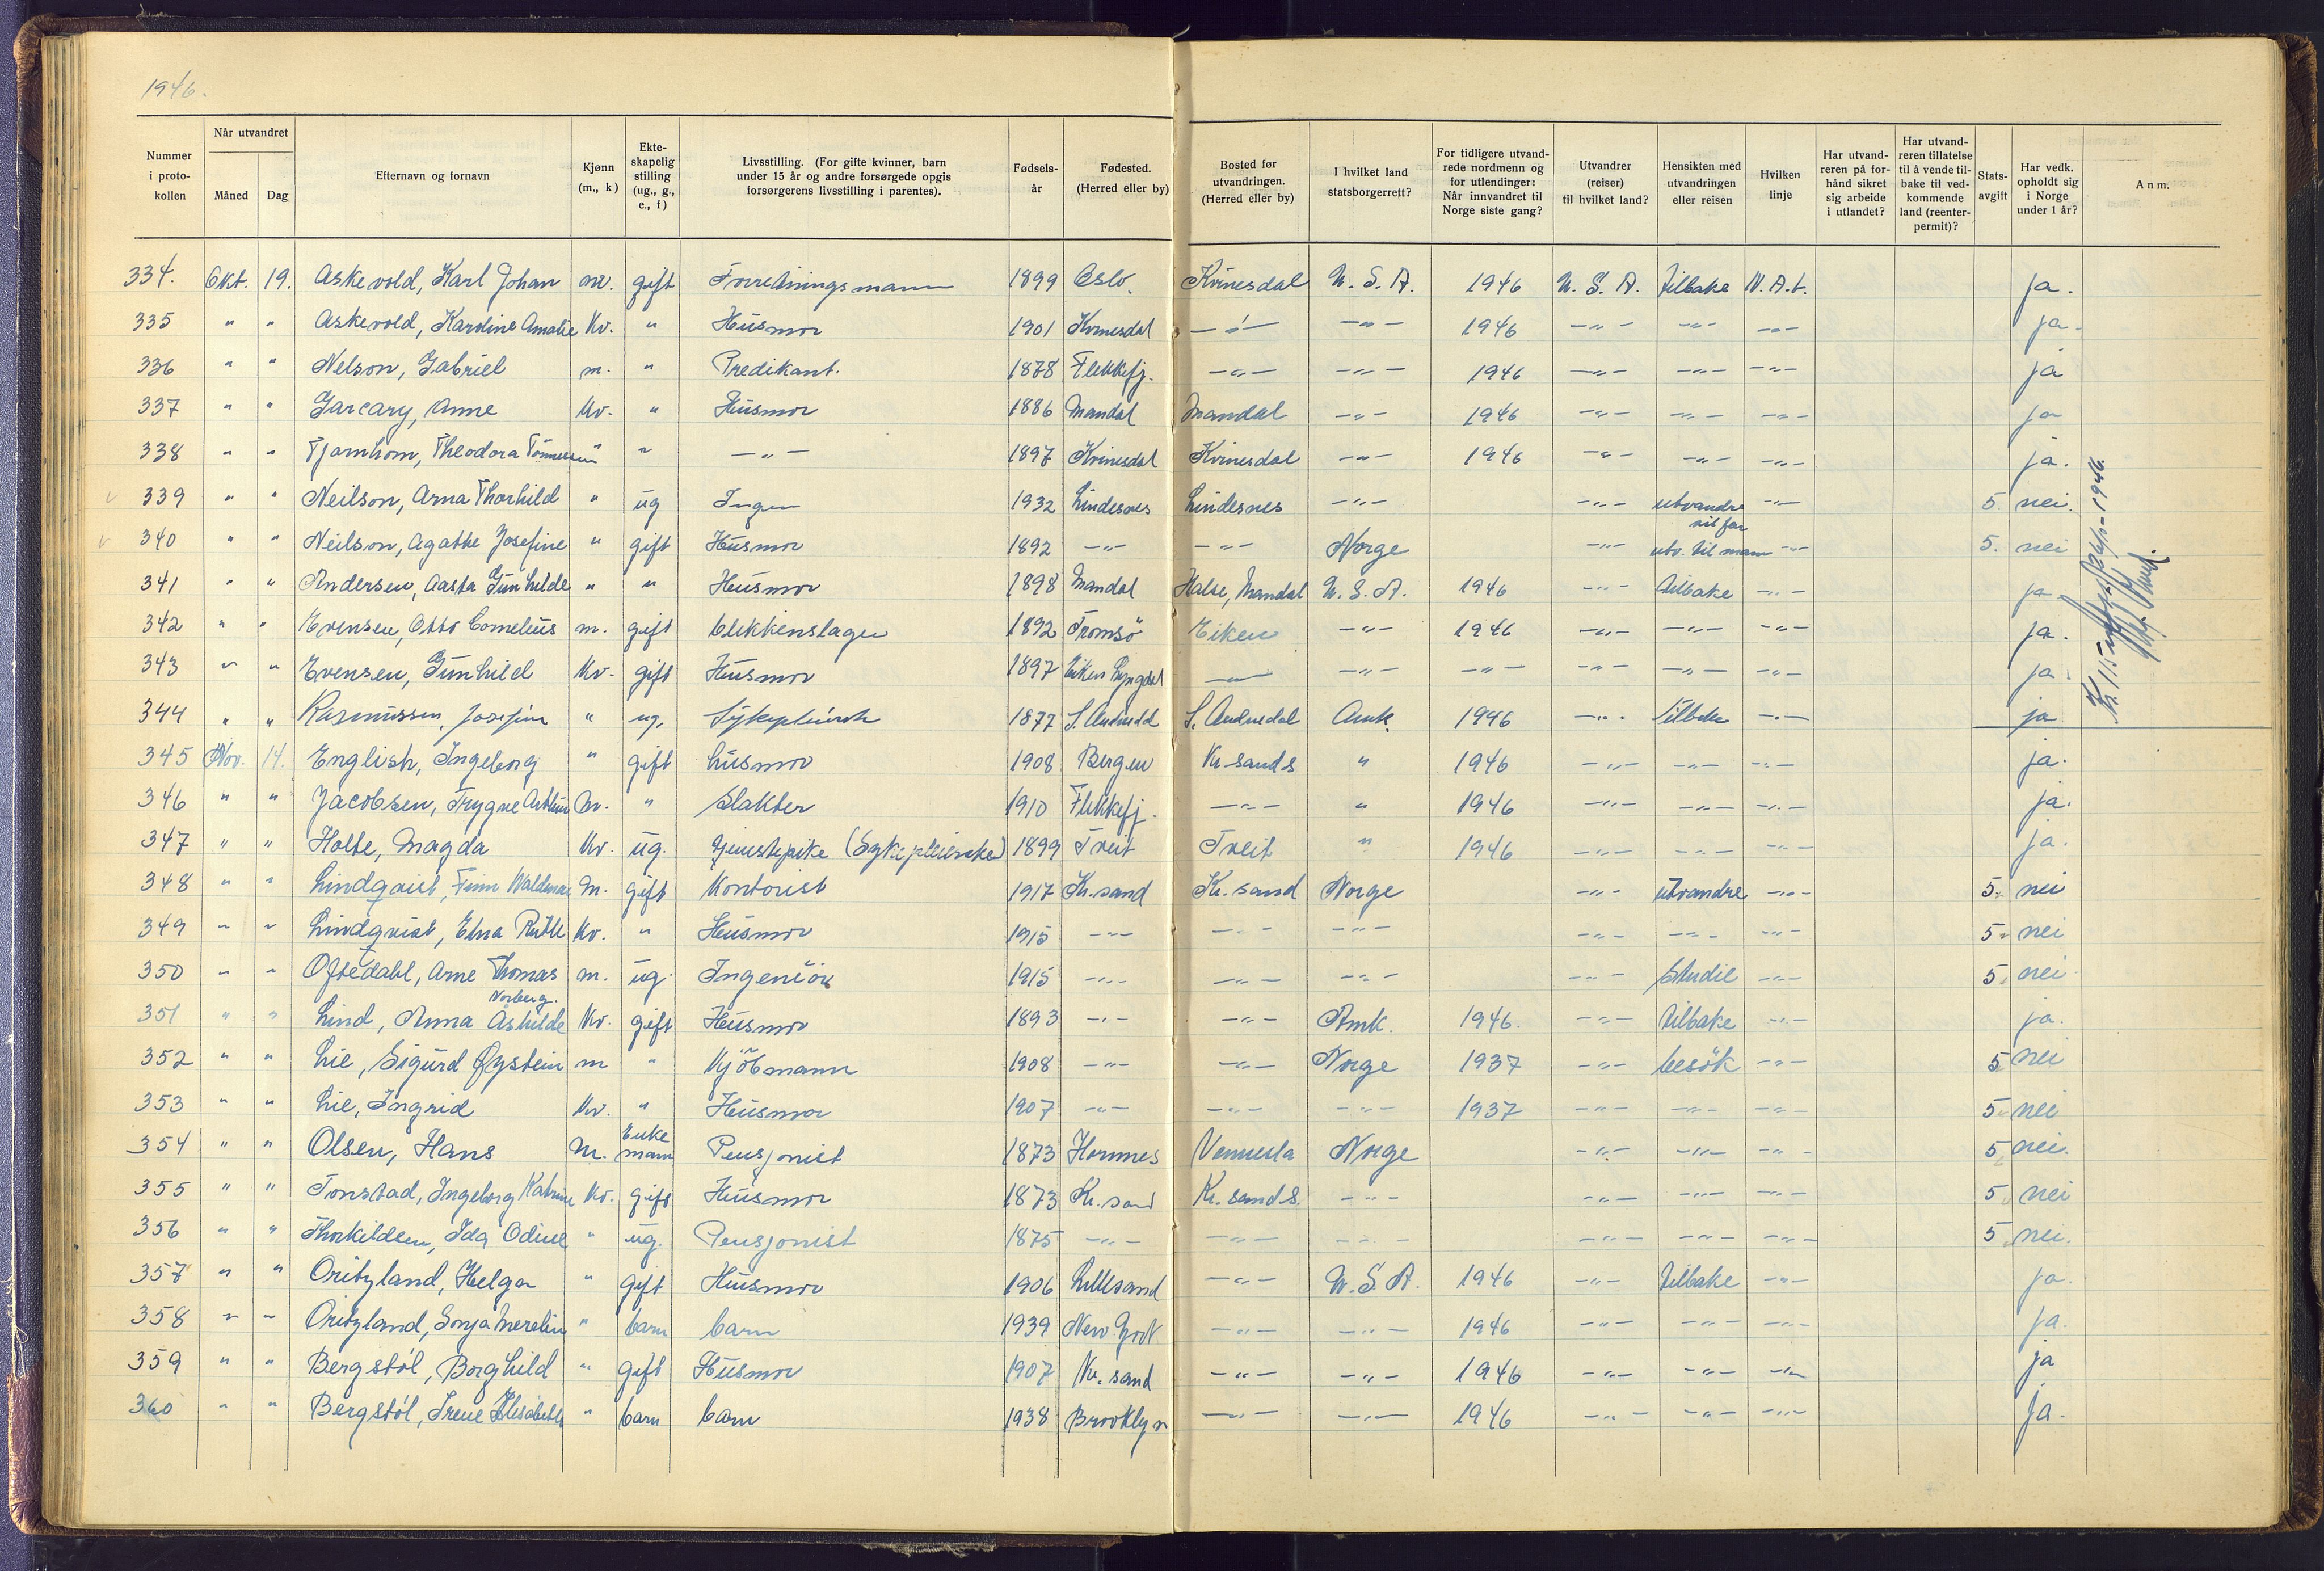 1946.
Nummer i proto- kollen | Når utvandret | Måned | Dag | Efternavn og fornavn | Kjønn (m., k) | Ekte- skapelig stilling (ug., g., e., f) | Livsstilling. (For gifte kvinner, barn under 15 år og andre forsørgede opgis forsørgerens livsstilling i parentes). | Fødsels- år | Fødested. (Herred eller by) | Bosted før utvandringen. (Herred eller by) | I hvilket land statsborgerrett? | For tidligere utvand- rede nordmenn og for utlendinger: Når innvandret til Norge siste gang? | Utvandrer (reiser) til hvilket land? | Hensikten med utvandringen eller reisen | Hvilken linje | Har utvand- reren på for- hånd sikret sig arbeide i utlandet? | Har utvand- reren tillatelse til å vende til- bake til ved- kommende land (reenter- permit)? | Stats- avgift | Har vedk. opholdt sig i Norge under 1 år? | Anm.
334. Okt. 19. Askevold, Karl Johan m. gift Forretningsmann 1899 Oslo. Kvinesdal U.S.A. 1946 U.S.A. tilbake N.A.L. ja.
335 " " Askevold, Karoline Amalie kv. " Husmor 1901 Kvinesdal -"- -"- 1946 -"- -"- -"- ja.
336 " " Nelson, Gabriel m. " Predikant. 1878 Flekkefj. -"- -"- 1946 -"- -"- -"- ja
337 " " Garcary, Anne kv. " Husmor 1886 Mandal Mandal -"- 1946 -"- -"- -"- ja
338 " " Tjomhom, Theodora Tønnessen " " -"- 1897 Kvinesdal Kvinesdal -"- 1946 -"- -"- -"- ja.
339 " " Neilson, Arna Thorhild " ug Ingen 1932 Lindesnes Lindesnes -"- -"- utvandre til far -"- 5. nei.
340 " " Neilson, Agathe Josefine " gift Husmor 1892 -"- -"- Norge -"- utv. til mann -"- 5. nei
341 " " Andersen, Aasta Gunhilde " " Husmor 1898 Mandal Halse, Mandal U.S.A. 1946 -"- tilbake -"- ja
342 " " Evensen, Otto Cornelius m. gift blikkenslager 1892 Tromsö Eiken -"- 1946 -"- -"- -"- ja.
343 " " Evensen, Gunhild kv. gift Husmor 1897 Eiken Lyngdal -"- -"- -"- -"- -"- -"- ja
344 " " Rasmussen, Josefine " ug. Sykepleierske 1877 S. Audnedal S. Audnedal Amk. 1946 -"- tilbake -"- ja
345 Nov. 14. English, Ingeborg " gift husmor 1908 Bergen Kr.sand S " 1946 -"- -"- -"- ja.
346 " " Jacobsen, Trygve Arthur m. " Slakter 1910 Flekkefj. -"- " 1946 -"- -"- -"- ja.
347 " " Holte, Magda kv. ug. tjenestepike (Sykepleierske) 1899 Tveit Tveit " 1946 -"- -"- -"- ja.
348 " " Lindqvist, Finn Waldemar m. gift Kontorist 1917 Kr.sand Kr.sand Norge -"- utvandre -"- 5. nei
349 " " Lindqvist, Elna Ruth kv. " Husmor 1915 -"- -"- -"- -"- -"- -"- 5. nei
350 " " Oftedahl, Arne Thomas m. ug. Ingeniör 1915 -"- -"- -"- -"- studie -"- 5. nei
351 " " Lind, Anna Åshilde Norberg. kv. gift Husmor 1893 -"- -"- Amk. 1946. -"- tilbake -"- ja.
352 " " Lie, Sigurd Øystein m " Kjöbmann 1908 -"- -"- Norge 1937 -"- besök -"- 5. nei
353 " " Lie, Ingrid kv. " Husmor 1907 -"- -"- -"- 1937 -"- -"- -"- 5. nei
354 " " Olsen, Hans m. Enke mann Pensjonist 1873 Hornnes Vennesla Norge -"- -"- -"- 5 nei.
355 " " Tonstad, Ingeborg Katrine kv. gift Husmor 1873 Kr.sand Kr.sand S. -"- -"- -"- -"- 5 nei
356 " " Thorkildsen, Ida Odine " ug. Pensjonist 1875 -"- -"- -"- -"- -"- -"- 5 nei.
357 " " Oritzland, Helga " gift Husmor 1906 Lillesand -"- U.S.A. 1946 -"- tilbake -"- ja.
358 " " Oritzland, Sonja Merelin " barn barn 1939 New York -"- -"- 1946 -"- -"- -"- ja.
359 " " Bergstøl, Borghild " gift Husmor 1907 Kr.sand -"- -"- 1946 -"- -"- -"- ja
360 " " Bergstøl, Irene Elisabeth " barn barn 1938 Brooklyn -"- -"- 1946 -"- -"- -"- ja.